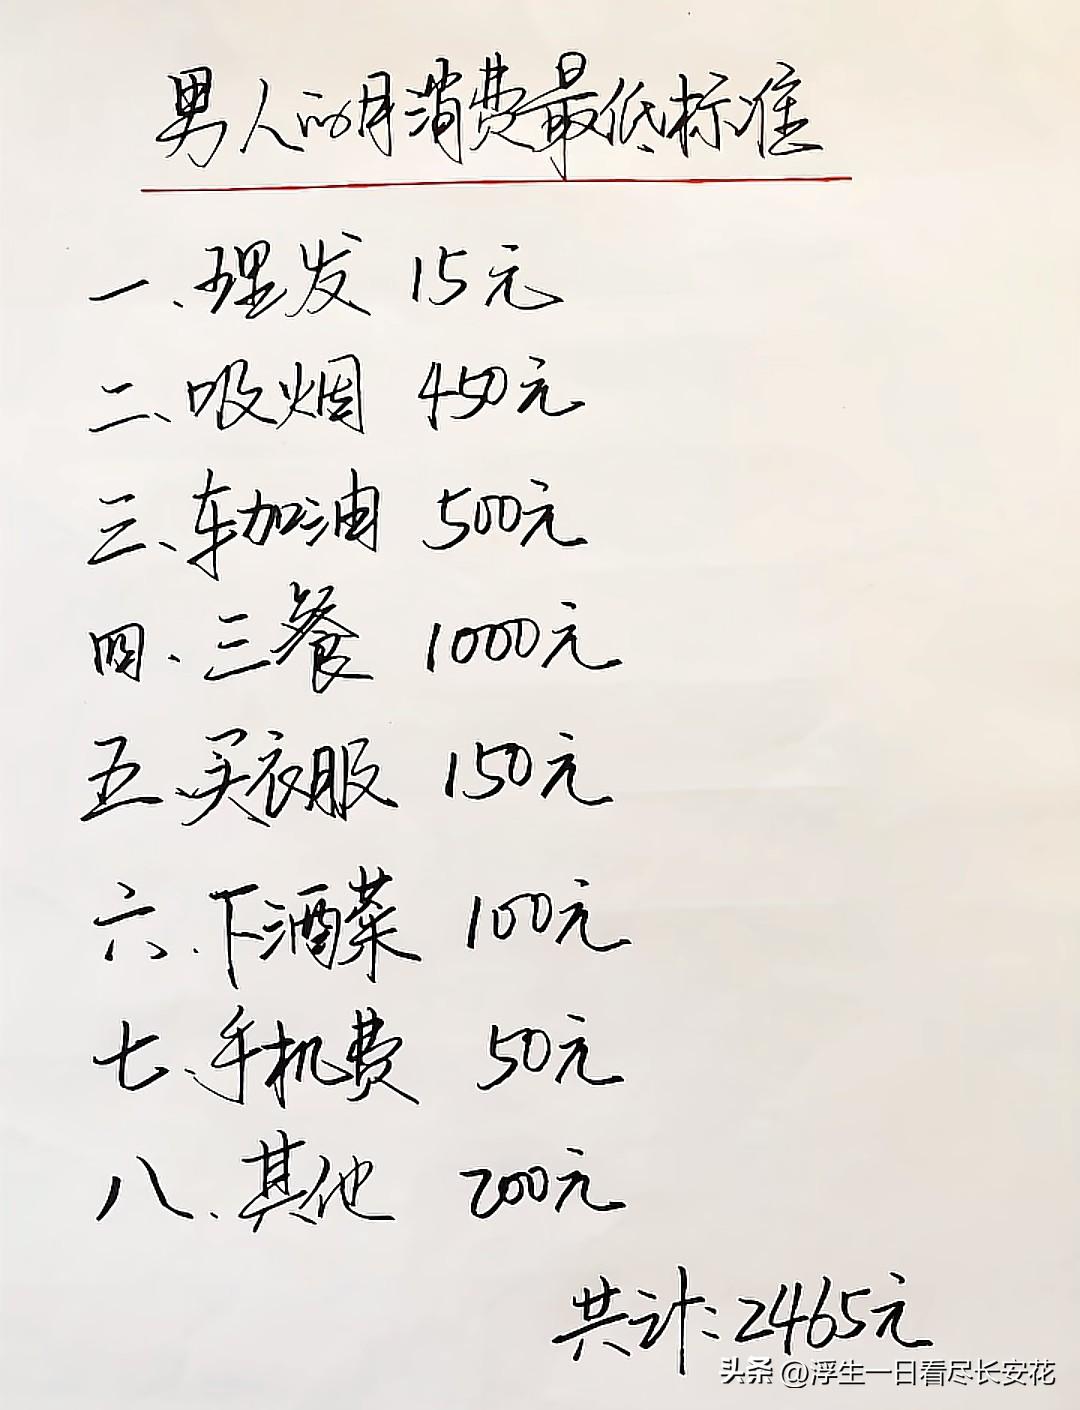 男人的月消费最低标准
一、理发 15元
二、吸烟 450元
三、车加油 500元
四、三餐 1000元
五、买衣服 150元
六、下酒菜 100元
七、手机费 50元
八、其他 200元
共计:2465元
头条 @浮生一日看尽长安花